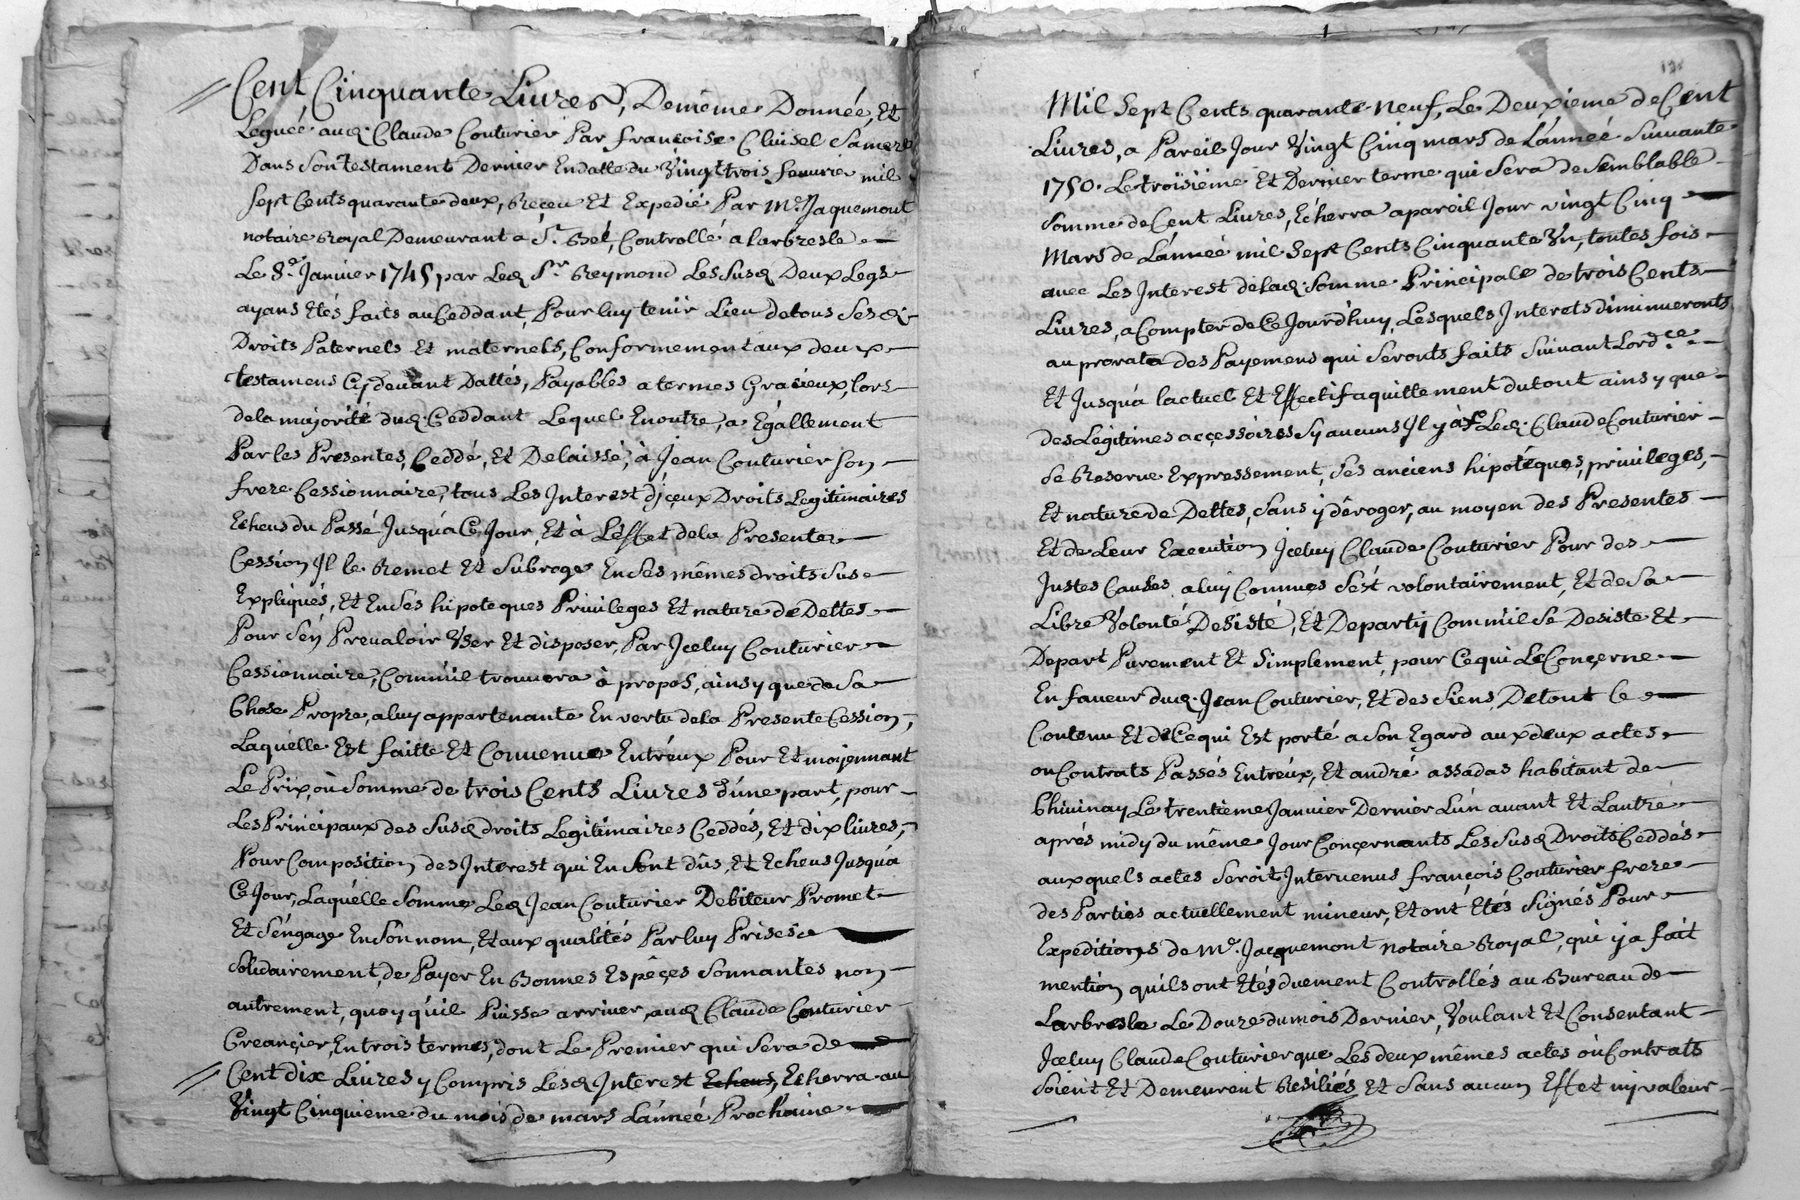 Cent Cinquante Livres, Demême Donnée, Et
Leguée aud. Claude Couturier Par françoise Clusel Samere
Dans Son testament Dernier Endatte du Vingt trois fevrier mil
Sept Cents quarante deux, Reçeu Et Expedié Par Me. Jaquemont
notaire Royal Demeurant a St. Bel, Controllé a Larbresle
Le 8e. Janvier 1745 par Led. Sr. Reymond Les Susd. Deux Legs
ayans Etés faits au Ceddant, Pour luy tenir Lieu de tous Sesd.
Droits Paternels Et maternels, Conformement aux deux
testamens Cy devant Dattés, Payables a termes Gracieux, lors
de la majorité dud. Ceddant Lequel Enoutre, a Egallement
Par les Presentes, Ceddé, Et Delaissé, à Jean Couturier Son
frere Cessionnaire, tous Les Interest d'jceux Droits Legitimaires
Echeus du Passé Jusqu'a Ce Jour, Et à L'effet de la Presente
Cession Jl le Remet Et Subroge En Ses mêmes droits Sus
Expliqués, Et En Ses hipoteques Privileges Et nature de Dettes
Pour S'en Prevaloir User Et disposer, Par Jceluy Couturier
Cessionnaire, Comm'il trouvera à propos, ainsy que de Sa
Chose Propre, a luy appartenante En vertu de la Presente Cession,
Laquelle Est faitte Et Convenue Entr'eux Pour Et moyennant
Le Prix, où Somme de trois Cents Livres d'une part, pour
Les Principaux des Susd. droits Legitimaires Ceddés, Et dix livres,
Pour Composition des Interest qui En Sont dûs, Et Echeus Jusqu'a
Ce Jour, Laquelle Somme Led. Jean Couturier Debiteur Promet
Et S'engage En Son nom, Et aux qualités Par luy Prises
Solidairement, de Payer En Bonnes Espêçes Sonnantes non
autrement, quoy qu'il Puisse arriver, aud. Claude Couturier
Creançier, En trois termes, dont Le Premier qui Sera de
Cent dix Livres y Compris Lesd. Interest Echeus, Echerra au
Vingt Cinquieme du mois de mars L'année Prochaine
Mil Sept Cents quarante neuf, Le Deuxieme de Cent
Livres, a Pareil Jour Vingt Cinq mars de L'année Suivante
1750. Le troisieme Et Dernier terme qui Sera de Semblable
Somme de Cent Livres, Echerra a pareil Jour vingt Cinq
Mars de L'année mil Sept Cents Cinquante Un, toutes fois
avec Les Interest de lad. Somme Principale de trois Cents
Livres, a Compter de Ce Jourd'huy, Lesquels Interets diminueronts
au prorata des Payemens qui Seronts faits Suivant Lord.ce
Et Jusqu'a lactuel Et Effectif aquittement du tout ainsy que
des Legitimes accessoires Sy aucuns Jl y à Led. Claude Couturier
Se Reserve Expressement, Ses anciens hipotéques, privileges,
Et nature de Dettes, Sans y déroger, au moyen des Presentes
Et de Leur Execution Jceluy Claude Couturier Pour des
Justes Causes a luy Connues S'est volontairement, Et de Sa
Libre Volonté Desisté, Et Departy Comm'il Se Desiste Et
Depart Purement Et Simplement, pour Ce qui Le Conçerne
En faveur dud. Jean Couturier, Et des Siens, De tout le
Contenu Et de Ce qui Est porté a Son Egard aux deux actes
ou Contrats Passés Entr'eux, Et andré assadas habitant de
Chivinay Le trentieme Janvier Dernier L'un avant Et L'autre
aprés midy du même Jour Conçernants Les Susd. Droits Ceddés
aux quels actes Seroit Intervenus françois Couturier frere
des Parties actuellement mineur, Et ont Etés Signés Pour
Expeditions de Me. Jacquemont notaire Royal, qui y a fait
mention qu'ils ont Etés duement Controllés au Bureau de
Larbresle Le Douze du mois Dernier, Voulant Et Consentant
Jceluy Claude Couturier que Les deux mêmes actes où Contrats
Soient Et Demeurent Resiliés Et Sans aucun Effet ny valeur